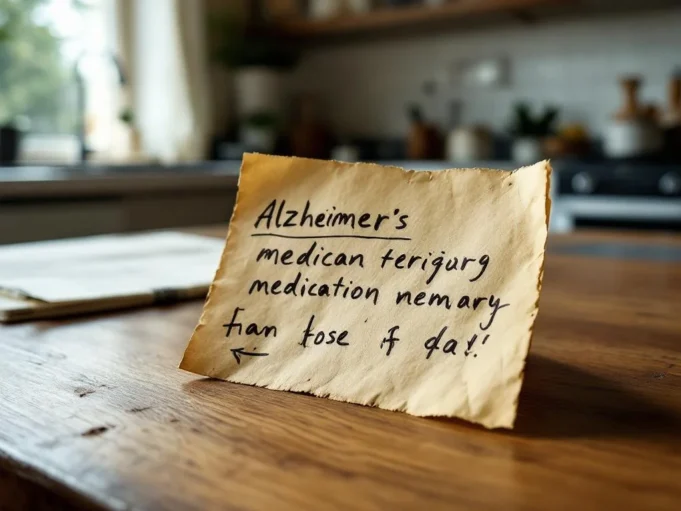 Alzheimer's
medican ferigurg
medication nemary
fian fose if da!!
←